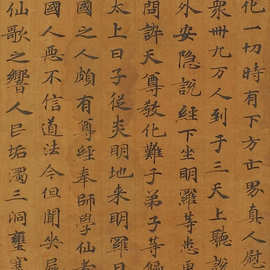 化一切時有下方世界真人慰
衆卌九万人到于三天上聽說
外安隐說經下坐明羅等悉更
閻許天尊敎化難子弟子等
太上曰子從炎明地来明羅曰
國之人頗有尊經奉師學仙者
國人悪不信道法令但聞㘴屍
仙歌之響人民垢濁三洞壅塞